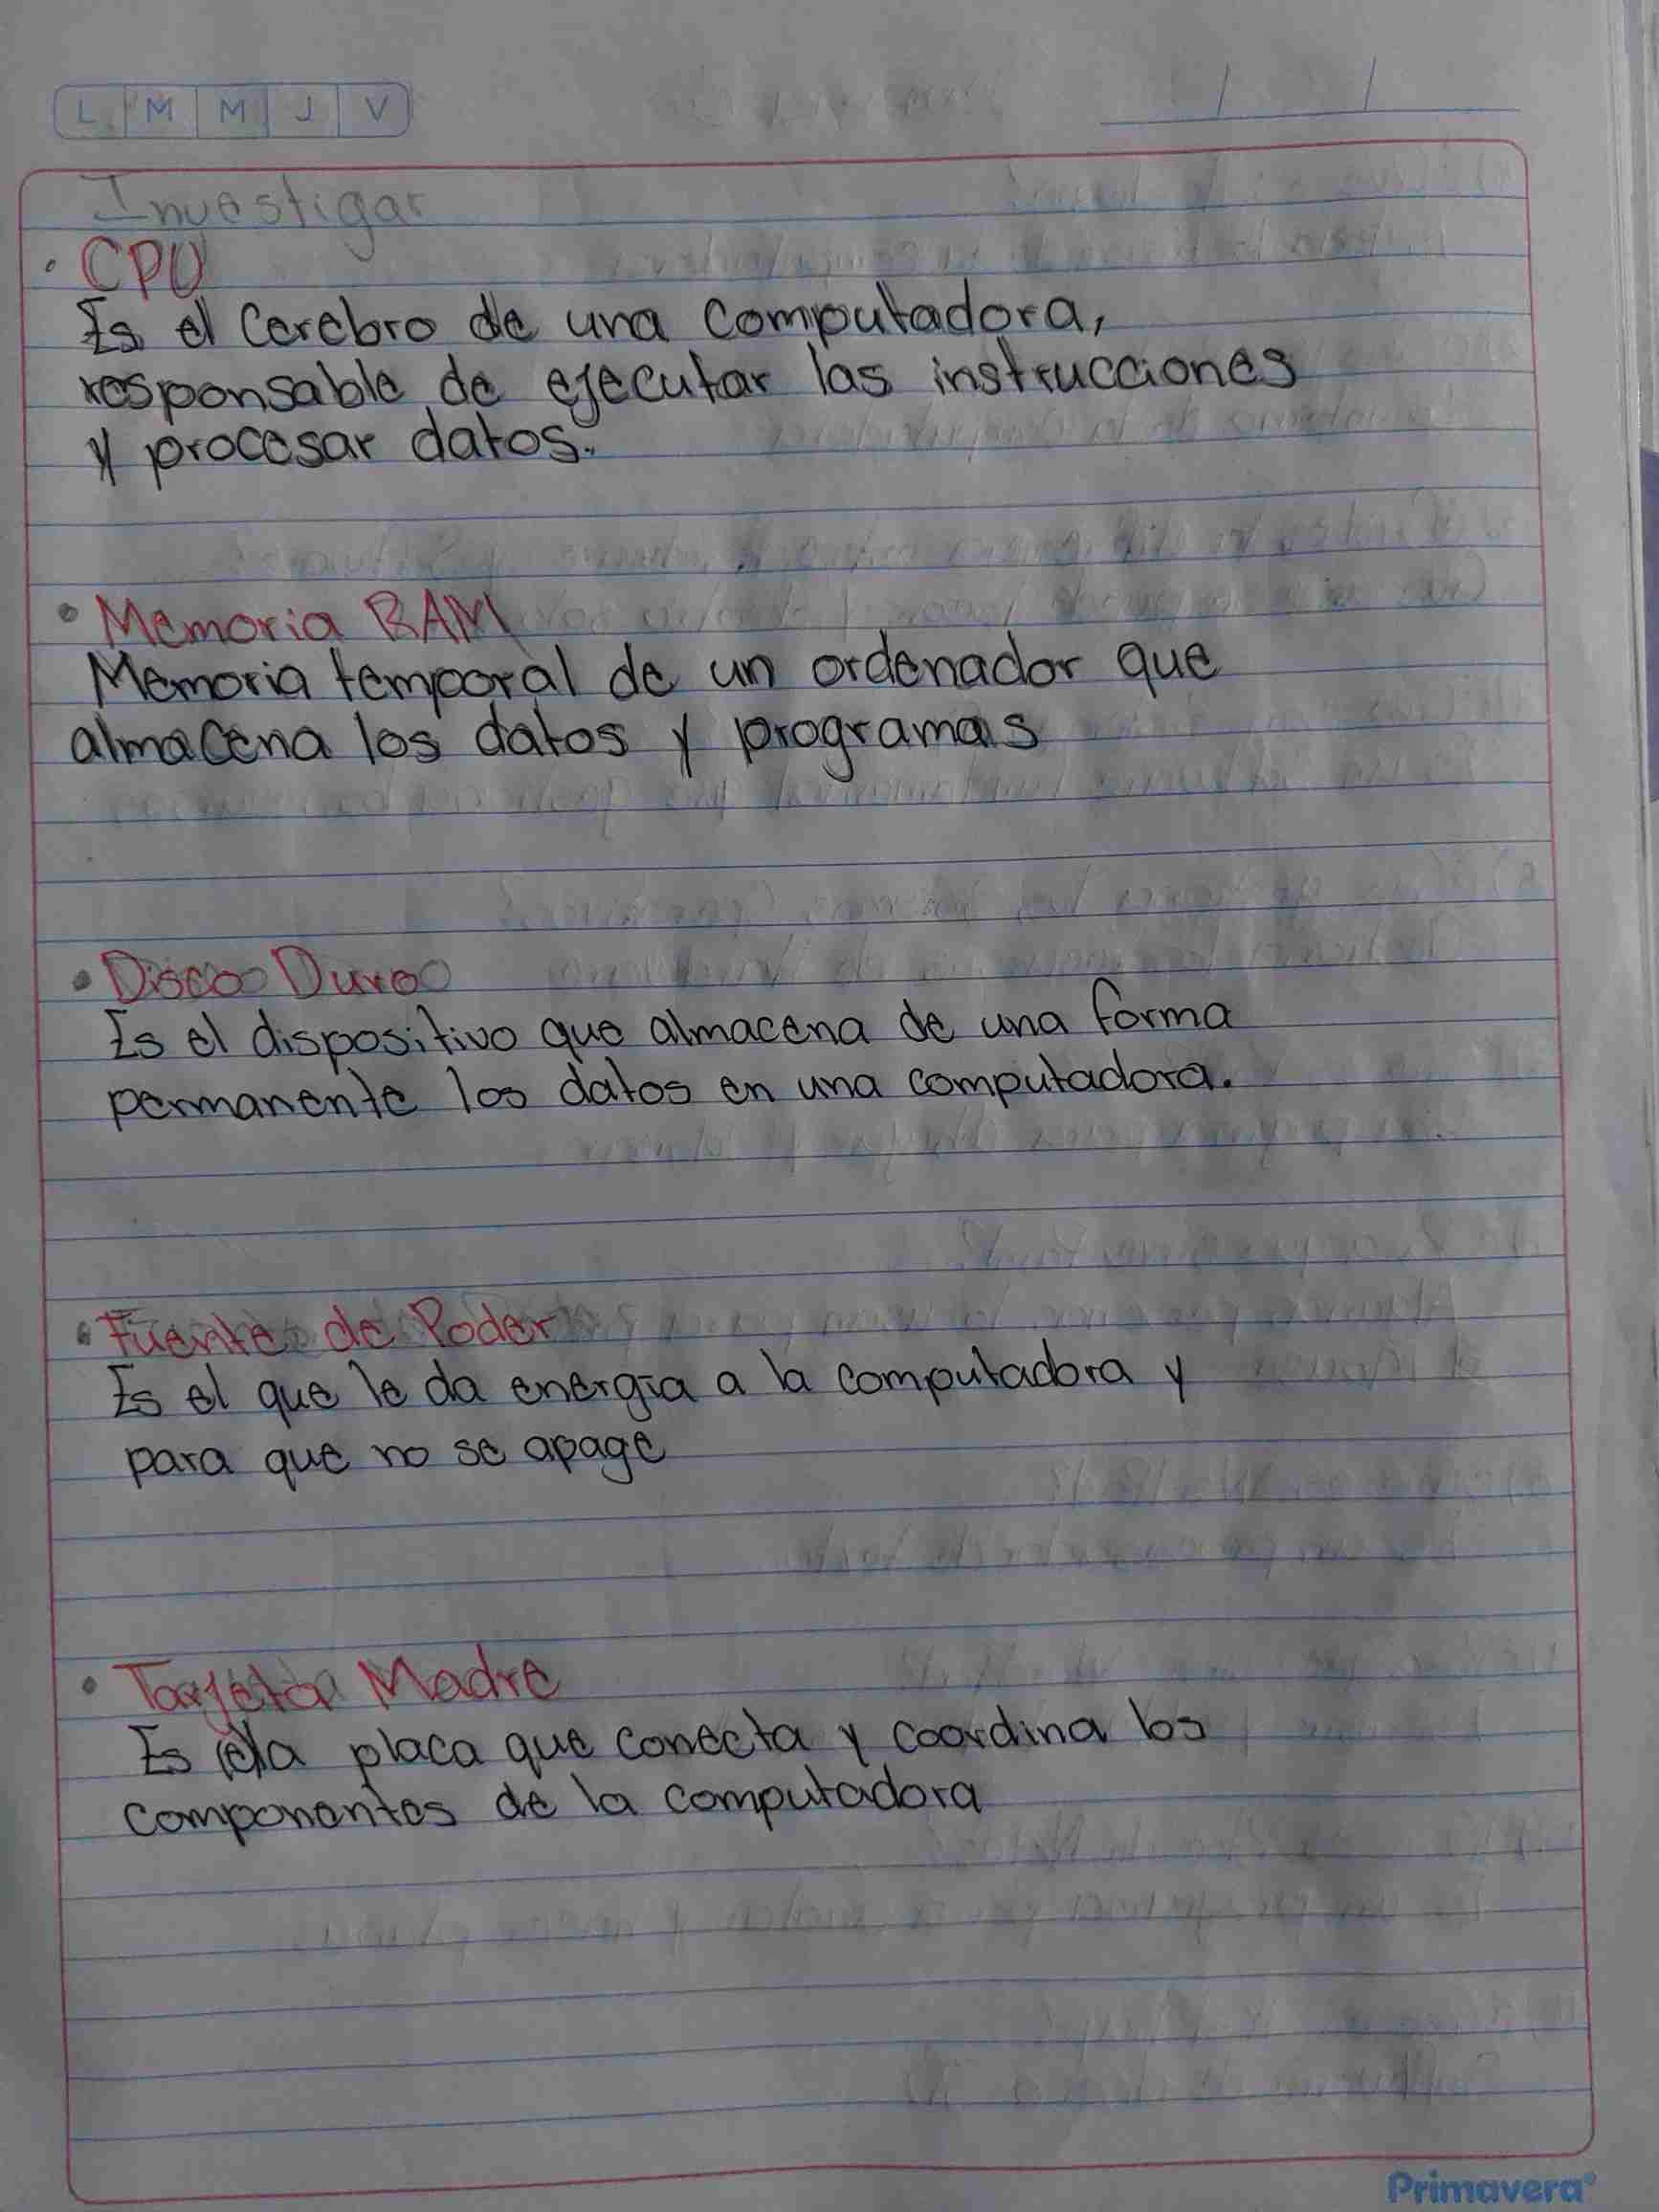 L M M J V
Investigar
• CPU
Es el Cerebro de una Computadora,
responsable de ejecutar las instrucciones
y procesar datos.
• Memoria RAM
Memoria temporal de un ordenador que
almacena los datos y programas
• Disco Duro
Es el dispositivo que almacena de una forma
permanente los datos en una computadora.
• Fuente de Poder
Es el que le da energía a la computadora y
para que no se apage
• Tarjeta Madre
Es la placa que conecta y coordina los
componentes de la computadora
Primavera